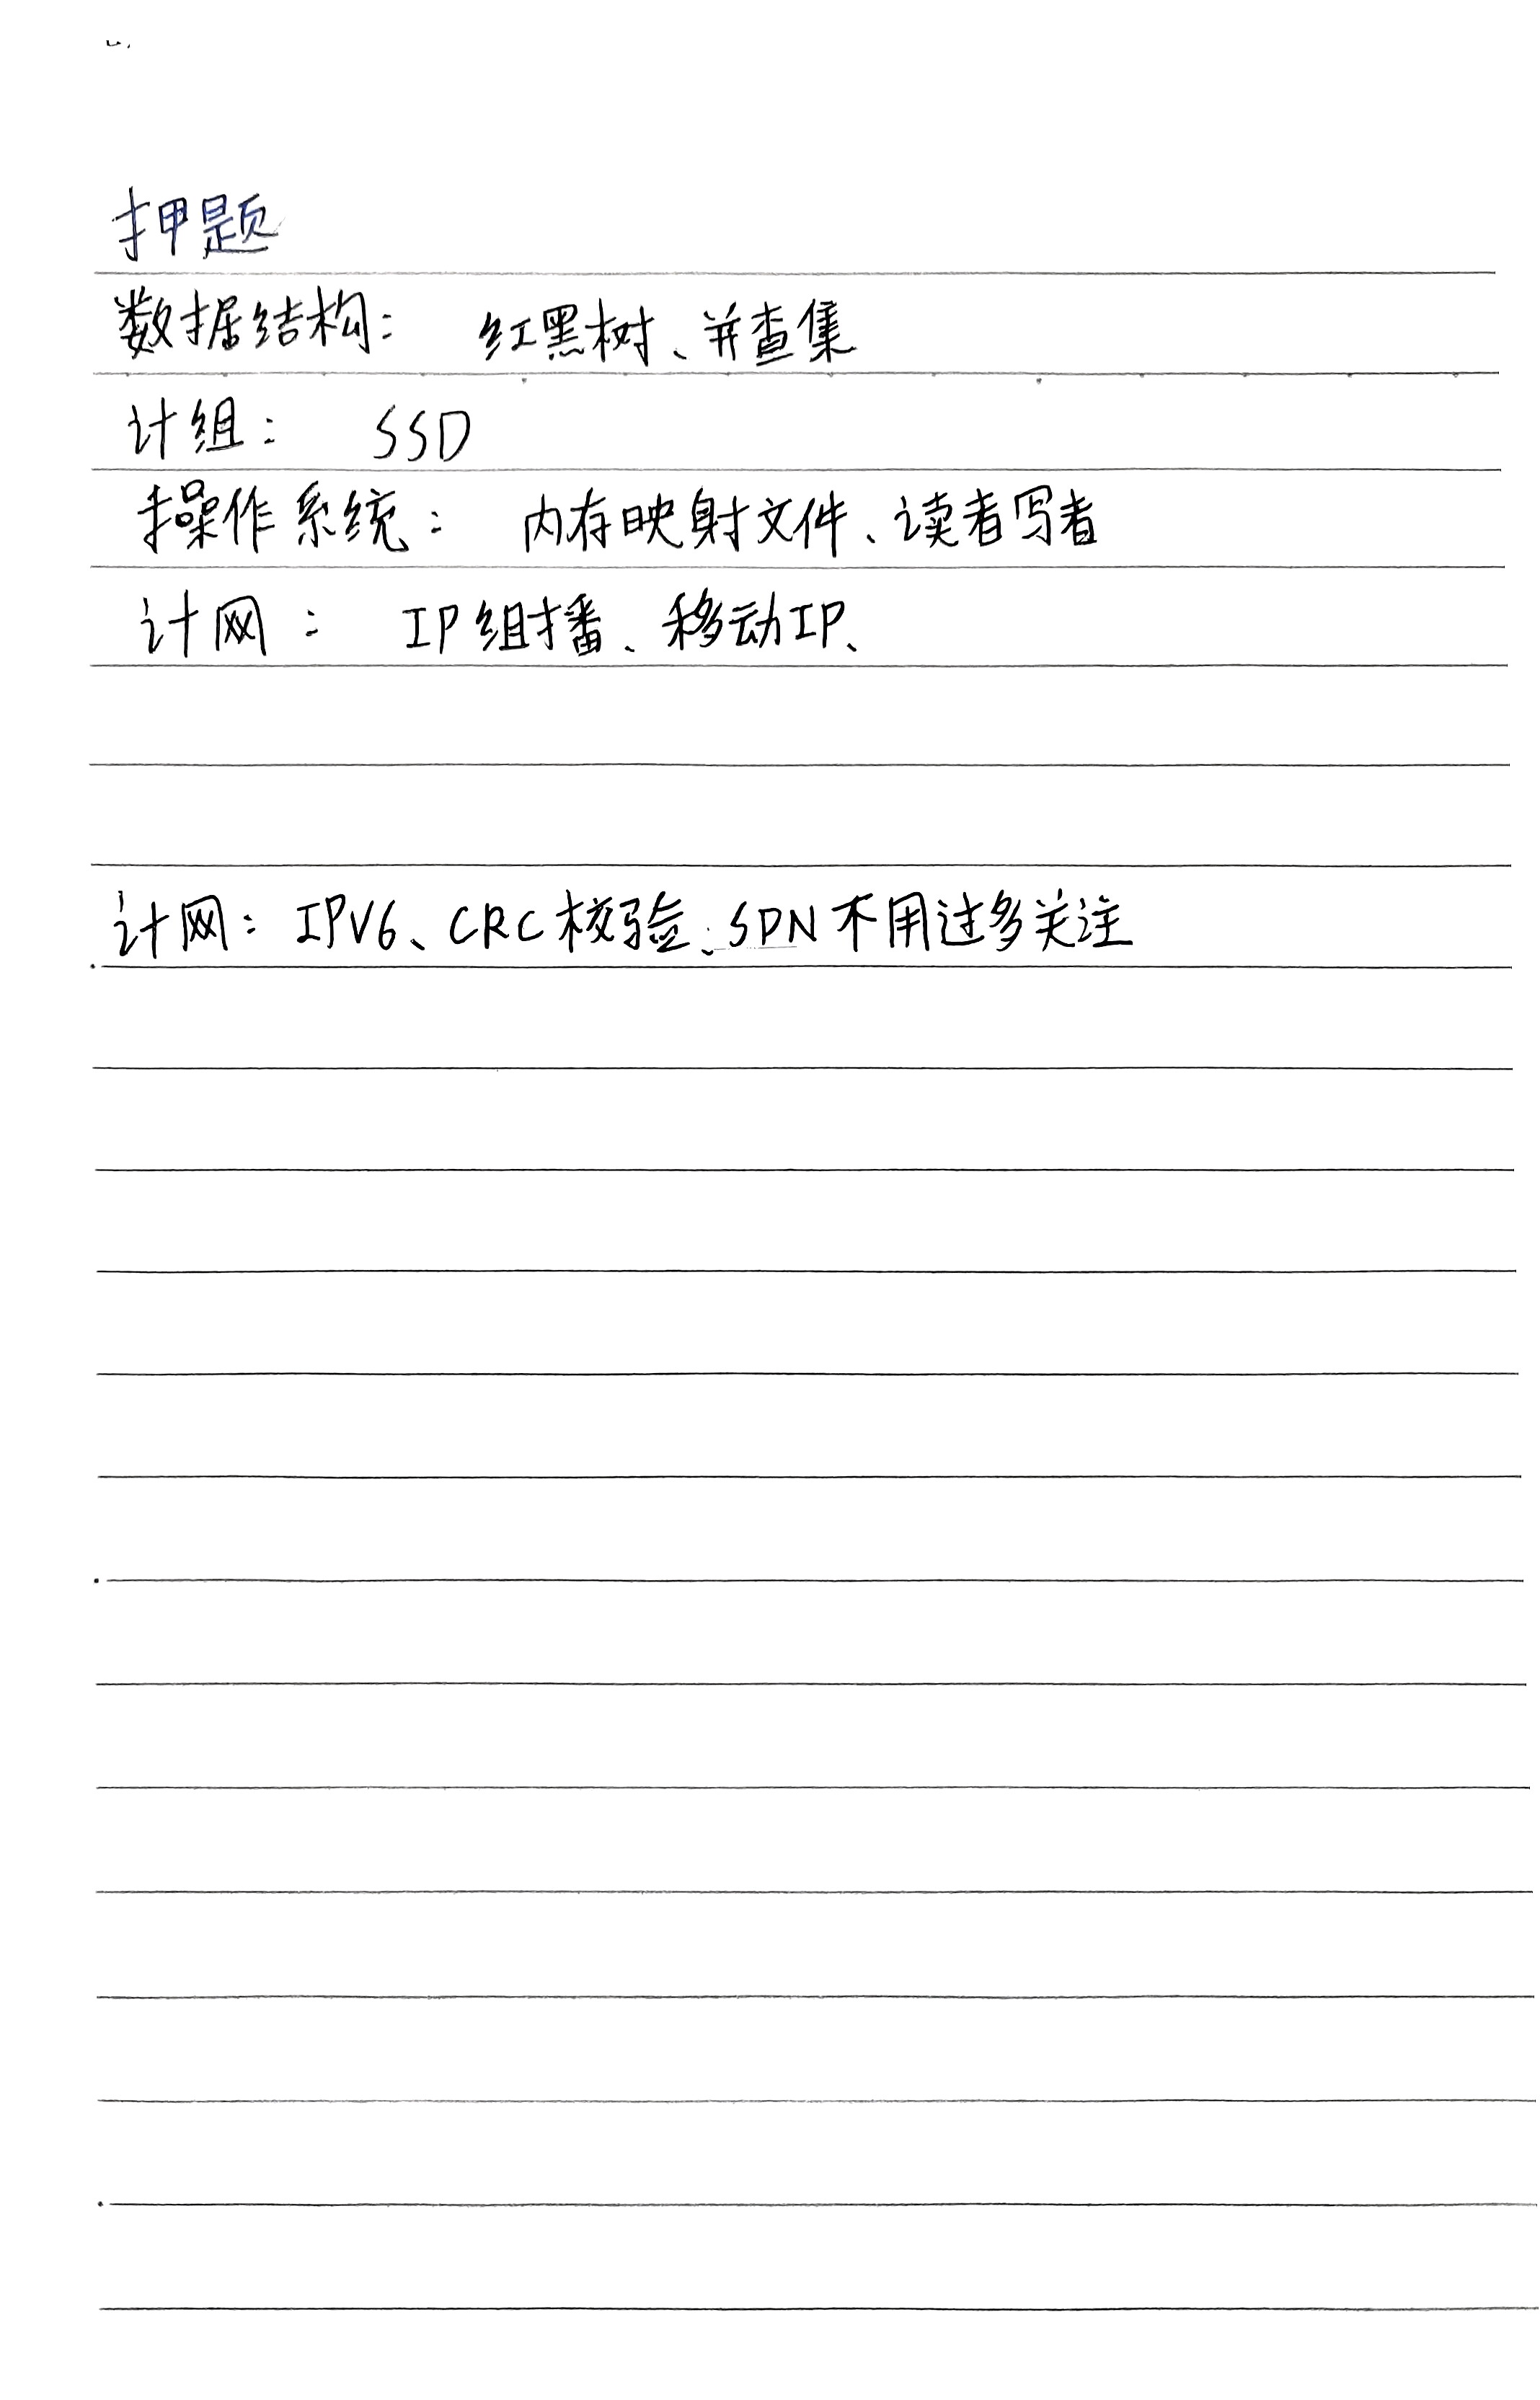 押题
数据结构： 红黑树、并查集
计组： SSD
操作系统： 内存映射文件、读者写者
计网： IP组播、移动IP、
计网：IPV6、CRC校验、SDN不用过多关注